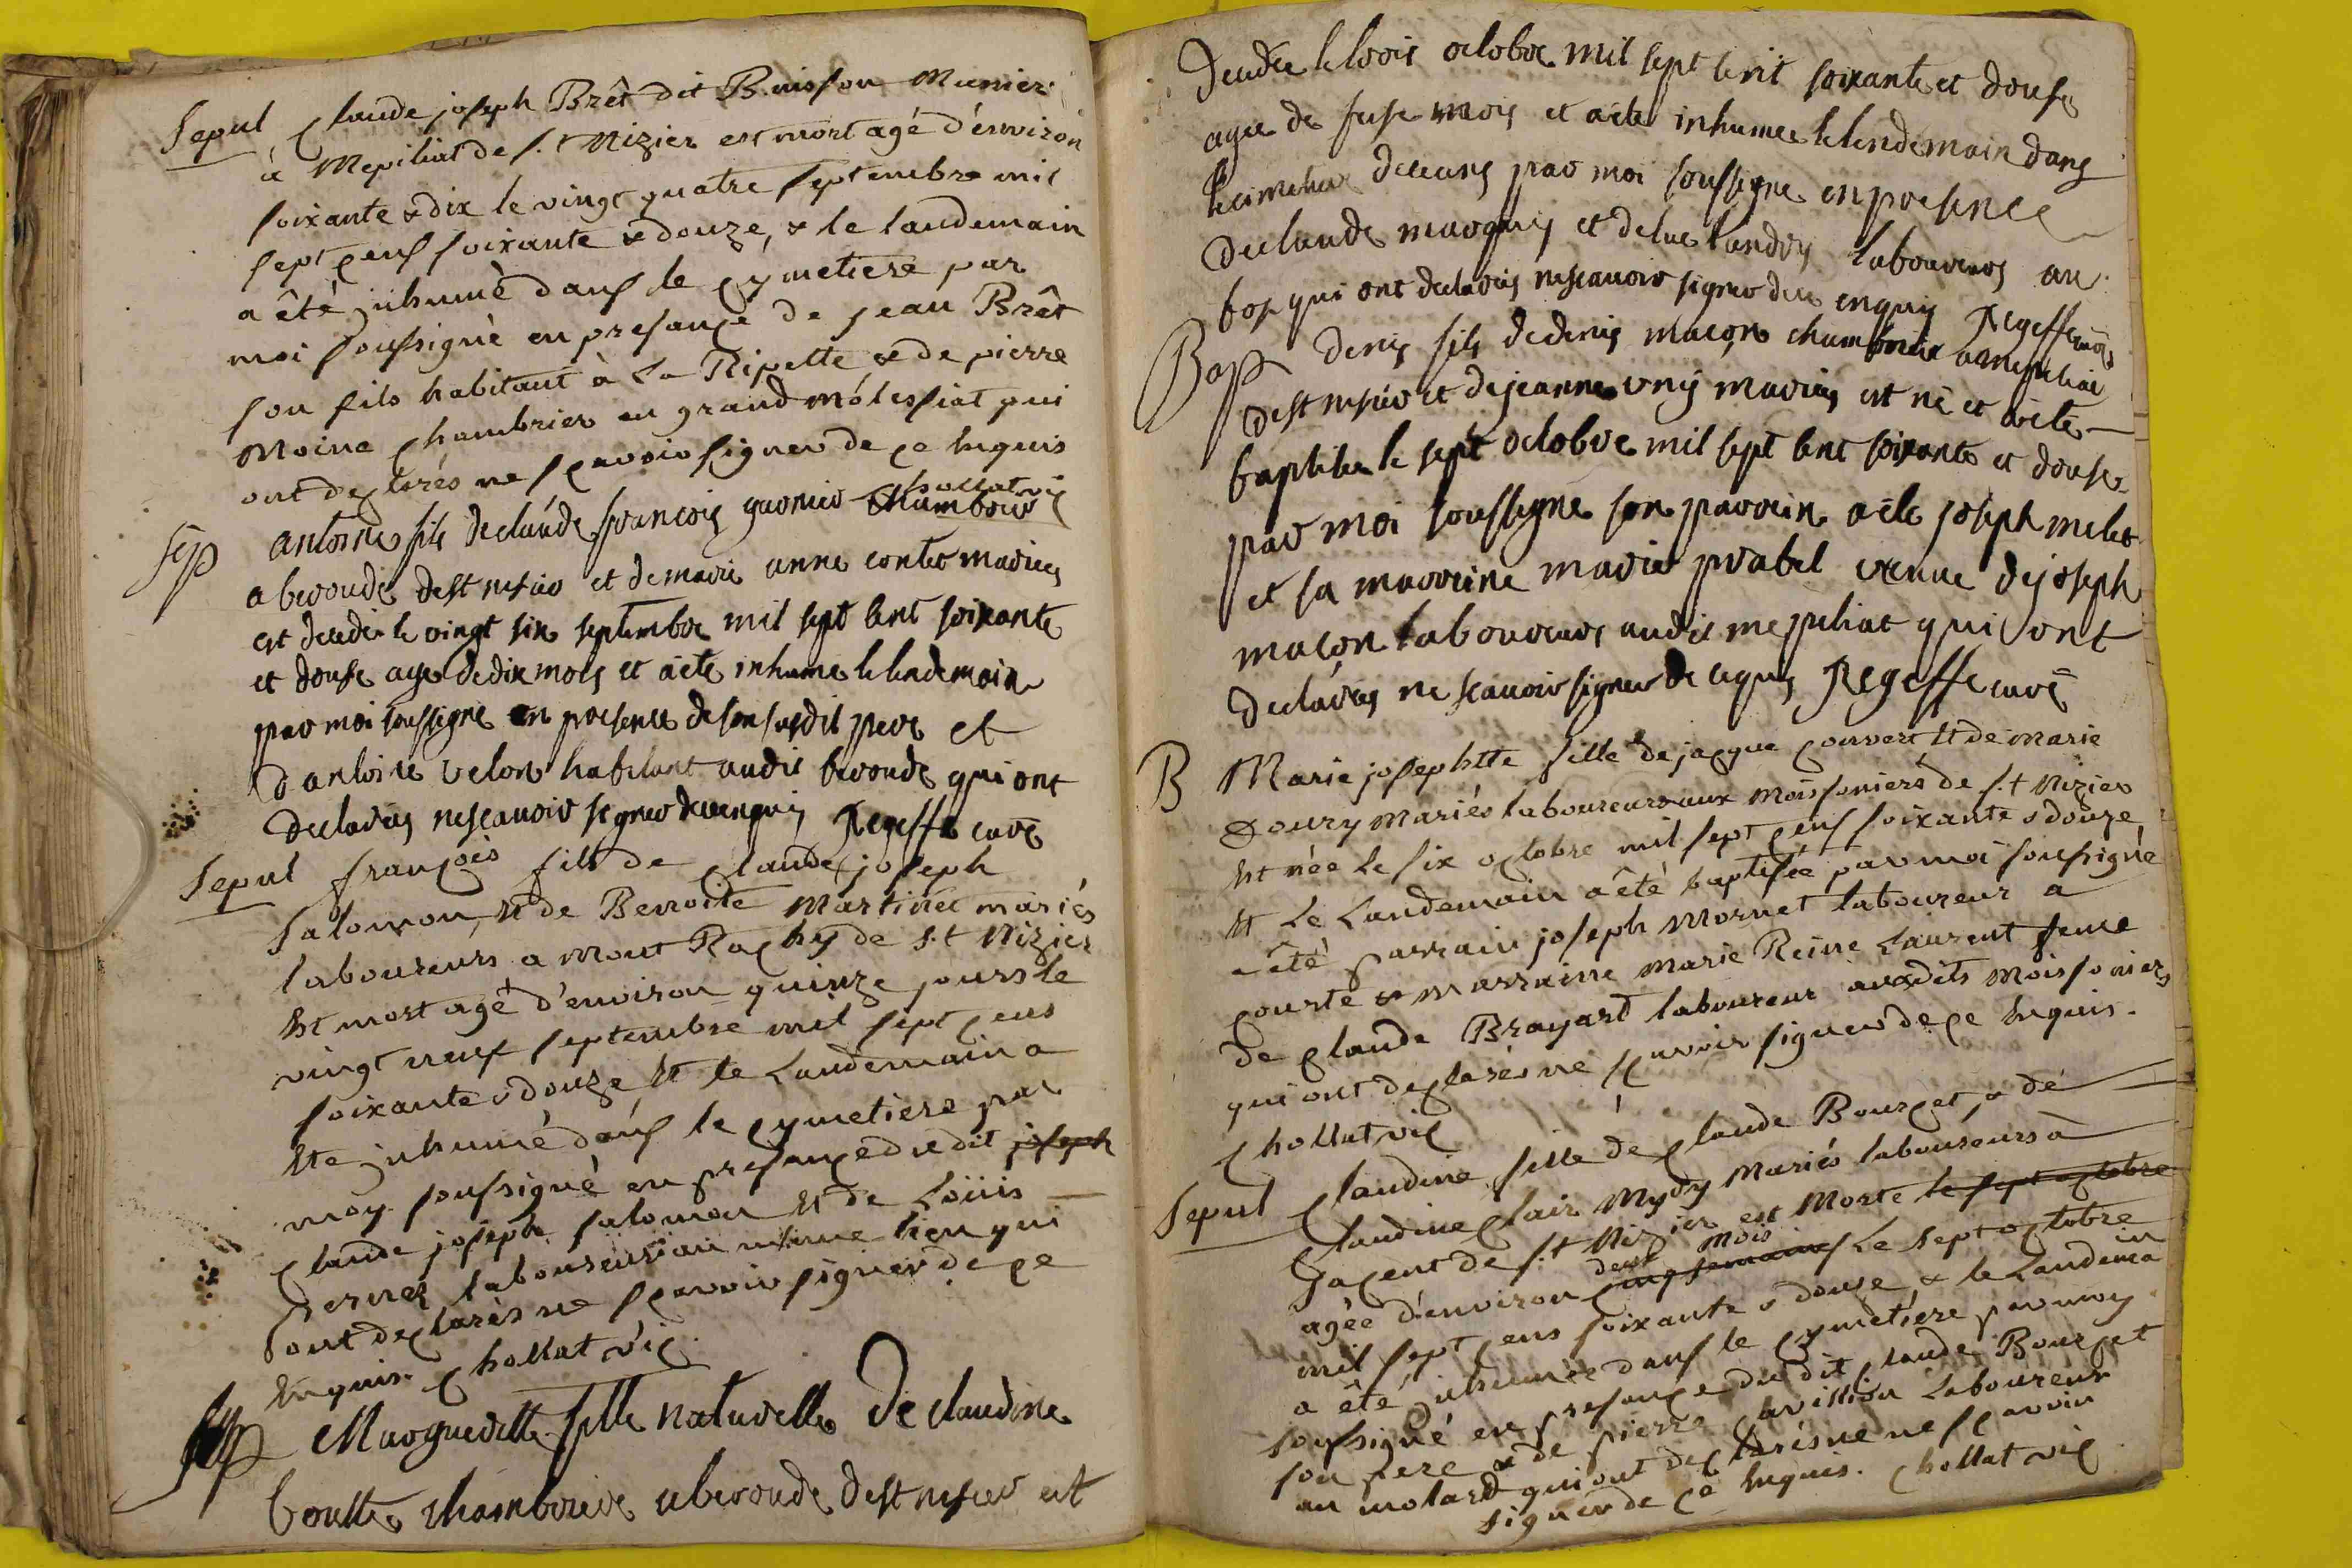 Sepul Claude joseph Brêt dit Buisson Munier
à Mepiliat de s.t Nizier est mort agé d'environ
soixante & dix le vingt quatre septembre mil
sept cens soixante & douze, & le landemain
a êté inhumé dans le cymetiere par
moi soussigné en presance de jean Brêt
son fils habitant à La Ripette & de pierre
Moine chambrier en grand molessiat qui
ont declarés ne scavoir signer de ce Enquis
chollat vic
Sep antoine fils de claude francois garnier chambrier
a beroude de st nesier et de marie anne conter maries
est decede le vingt six septembre mil sept cent soixante
et douse age de dix mois et a ete inhume le lendemain
par moi soussigne en presence de son susdit pere et
d antoine velon habitant audit beroude qui ont
declares ne scavoir signer de ce enquis Regeffe curé
Sepul françois fils de claude joseph
Salomon, Et de Benoite Martinée mariés
laboureurs a Mont Rachy de s.t Nizier
Est mort agé d'environ quinze jours le
vingt neuf septembre mil sept cens
soixante & douze Et le Landemain a
Ete inhumé dans le cymetiere par
moy soussigné en presance du dit joseph
claude joseph salomon Et de Loüis
Perret laboureurs au même lieu qui
sont declarés ne scavoir signer de ce
Enquis. chollat vic
Sep Margueritte fille naturelle De claudine
boulle chambriere a beroude de st nesier est
Decedee le trois octobre mil sept cent soixante et douse
agee de sese mois et a ete inhumee le lendemain dans
le cimetiere de ceans par moi soussigne en presence
de claude marguis et de luc landry laboureurs au
bos qui ont declares ne scavoir signer de ce enquis Regeffe curé
Bap denis fils de denis maçon chambrier a mepiliat
de st nesier et de jeanne uny maries est né et a ete
baptisé le sept octobre mil sept cent soixante et douse
par moi soussigne son parrein a ete joseph melet
et sa marreine marie prabel veuve de joseph
maçon laboureurs audit mepiliat qui ont
declares ne scavoir signer de ce enquis Regeffe curé
B Marie josephtte fille de jacque convert Et de marie
Doury mariés laboureurs aux moissoniers de s.t Nizier
Est née Le six octobre mil sept cens soixante & douze
Et Le Landemain a êté baptisée par moi soussigné
a êté parrain joseph Mornet laboureur a
courte & marraine marie Reine Laurent feme
de claude Brayard laboureur aux dits Moissoniers
qui ont declarés ne scavoir signer de ce Enquis.
chollat vic
Sepul Claudine fille de claude Bourcet, & de
claudine clair Mydy Mariés laboureurs à
Gacent de s.t Nizier est Morte le sept octobre
deux mois
agée d'environ cinq semaines Le sept octobre
mil sept cens soixante & douse, & le Landemain
a êté inhumée dans le cymetiere par moy
soussigné en presance du dit claude Bourcet
son pere & de pierre cavillion Laboureur
au molard qui ont declarés ne scavoir
signer de ce Enquis. chollat vic